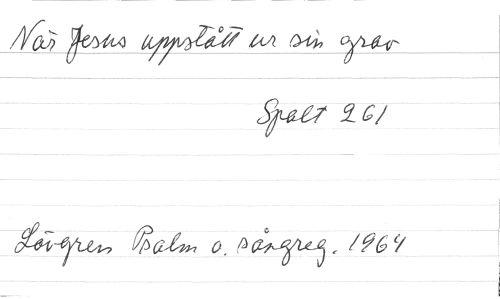 När Jesus uppstått ur sin grav
Spalt 261
Lövgren Psalm o. sångreg. 1964